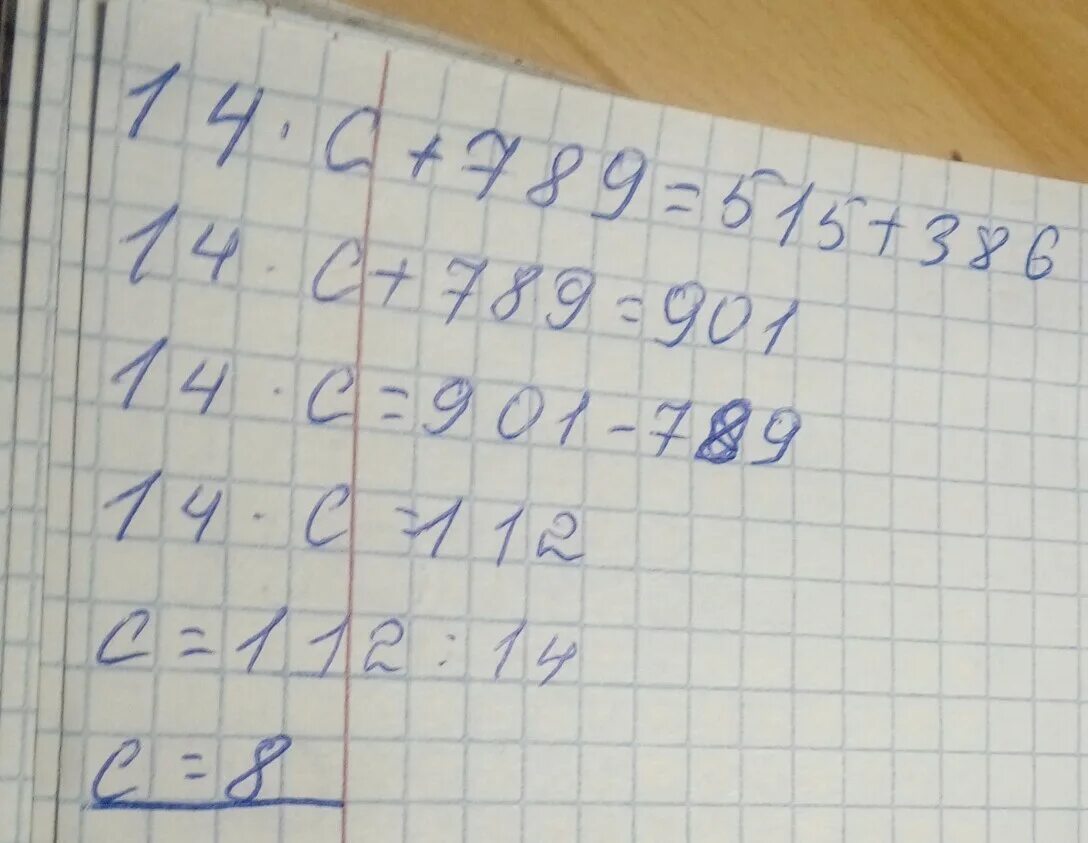 14 · c + 789 = 515 + 386
14 · c + 789 = 901
14 · c = 901 - 789
14 · c = 112
c = 112 : 14
c = 8